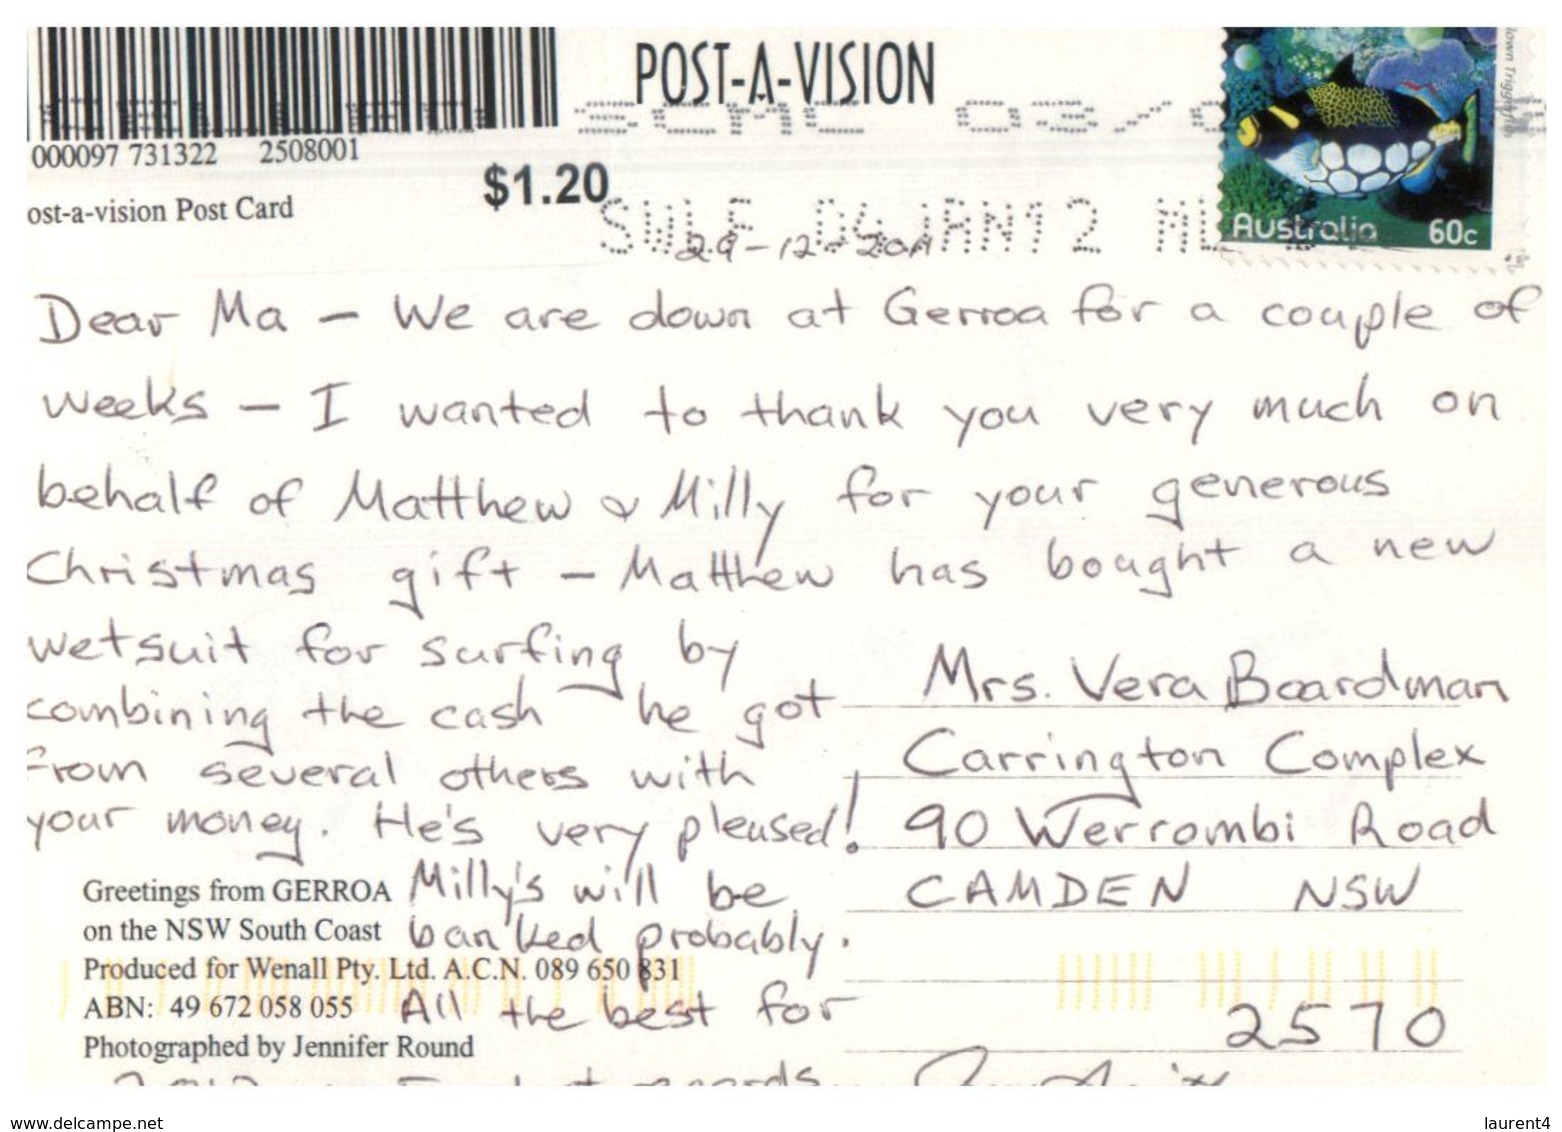 POST-A-VISION
own Triggerfish
000097 731322 2508001
$1.20
ost-a-vision Post Card
SCMC 03/0
SWLF 04JAN12 ML
Australia 60c
29-12-2011
Dear Ma - We are down at Gerroa for a couple of
weeks - I wanted to thank you very much on
behalf of Matthew & Milly for your generous
Christmas gift - Matthew has bought a new
wetsuit for surfing by
combining the cash he got
from several others with
your money. He's very pleased!
Milly's will be
banked probably.
All the best for
2012
regards
Mrs. Vera Boardman
Carrington Complex
90 Werrombi Road
CAMDEN NSW
2570
Greetings from GERROA
on the NSW South Coast
Produced for Wenall Pty. Ltd. A.C.N. 089 650 831
ABN: 49 672 058 055
Photographed by Jennifer Round
www.delcampe.net
laurent4